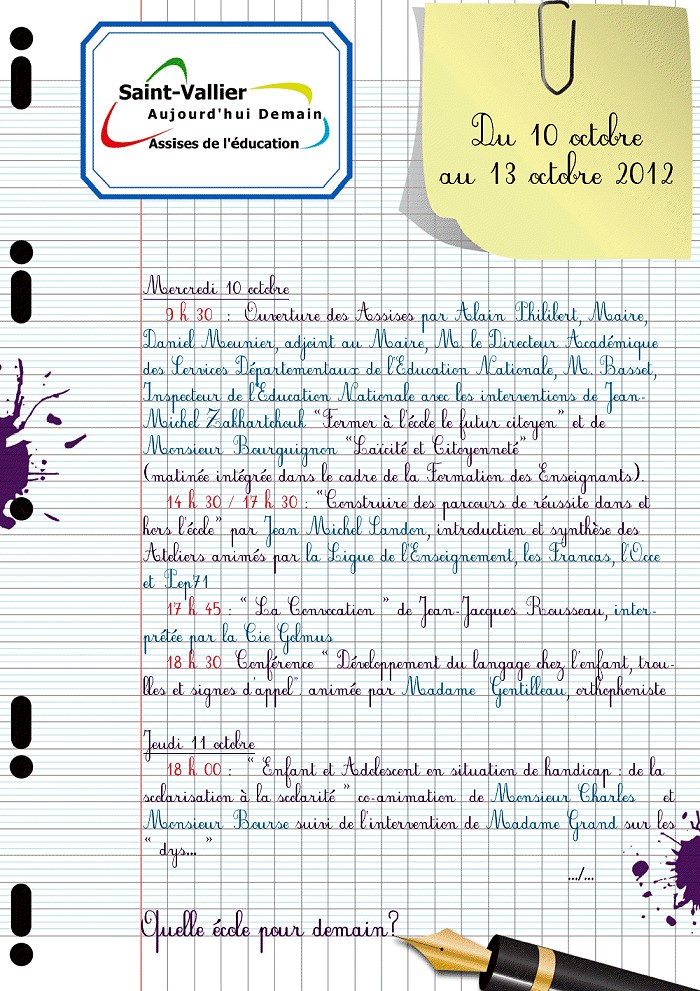 Saint-Vallier
Aujourd'hui Demain
Assises de l'éducation
Du 10 octobre
au 13 octobre 2012
Mercredi 10 octobre
9 h 30 : Ouverture des Assises par Alain Philibert, Maire,
Daniel Meunier, adjoint au Maire, M. le Directeur Académique
des Services Départementaux de l'Education Nationale, M. Basset,
Inspecteur de l'Education Nationale avec les interventions de Jean-
Michel Zakhartchouk "Former à l'école le futur citoyen" et de
Monsieur Bourguignon "Laïcité et Citoyenneté"
(matinée intégrée dans le cadre de la Formation des Enseignants).
14 h 30 / 17 h 30 : "Construire des parcours de réussite dans et
hors l'école" par Jean Michel Landon, introduction et synthèse des
Ateliers animés par la Ligue de l'Enseignement, les Francas, l'Occe
et Pep71
17 h 45 : " La Convocation " de Jean-Jacques Rousseau, inter-
prétée par la Cie Golmus
18 h 30 Conférence " Développement du langage chez l'enfant, trou-
lles et signes d'appel". animée par Madame Gentilleau, orthophoniste
Jeudi 11 octobre
18 h 00 : " Enfant et Adolescent en situation de handicap : de la
scolarisation à la scolarité " co-animation de Monsieur Charles et
Monsieur Bourse suivi de l'intervention de Madame Grand sur les
" dys... "
.../...
Quelle école pour demain?